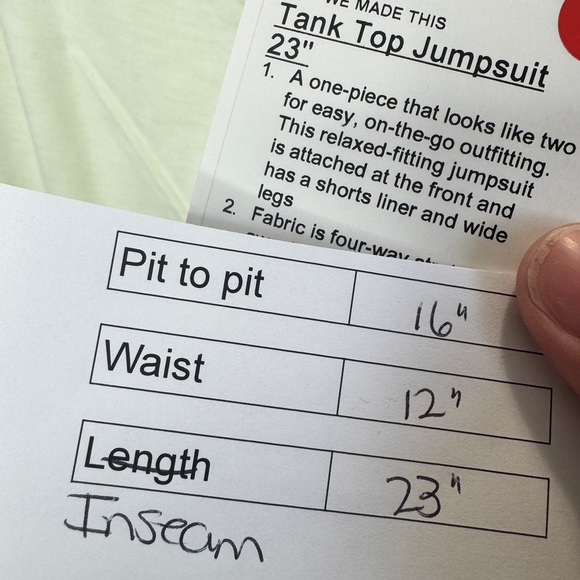 WE MADE THIS
Tank Top Jumpsuit
23"
1. A one-piece that looks like two
for easy, on-the-go outfitting.
This relaxed-fitting jumpsuit
is attached at the front and
has a shorts liner and wide
legs
2. Fabric is four-way
Pit to pit 16"
Waist 12"
Length 23"
Inseam